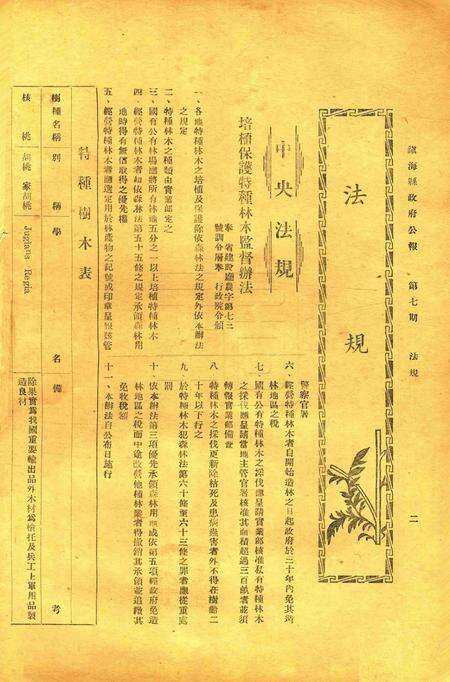 鎮海縣政府公報 第七期 法規
二
法 規
中央法規
培植保護特種林木監督辦法
奉 省建設廳農字第七三
號訓令層奉 行政院令頒
一、各地特種林木之培植及保護除依森林法之規定外依本辦法
之規定
二、特種林木之種類由實業部定之
三、國有公有林場應將所有林地五分之一以上培植特種林木
四、經營特種林木者如依森林法第五十五條之規定承領森林用
地時得有無償取得之優先權
五、經營特種林木者應選定用於林產物之記號或印章呈報該管
警察官署
六、經營特種林木者自開始造林之日起政府於三十年內免其造
林地區之稅
七、國有公有特種林木之採伐應呈請實業部核准私有特種林木
之採伐應呈請當地主管官署核准其面積超過三百畝者並須
轉報實業部備查
八、特種林木之採伐更新除枯死及患病蟲害者外不得在樹齡二
十年以下行之
九、於特種林木犯森林法第六十條至六十三條之罪者應從重處
罰
十、依本辦法第三項優先承領森林用地或依第五項經政府免造
林地區之稅而中途改營他種林業者得撤銷其承領並追繳其
免收稅額
十一、本辦法自公布日施行
特種樹木表
樹種名稱 別 稱 學 名 備 考
核 桃 胡桃 家胡桃 Juglans Regia 除果實為我國重要輸出品外木材為槍托及兵工上軍用品製
造良材